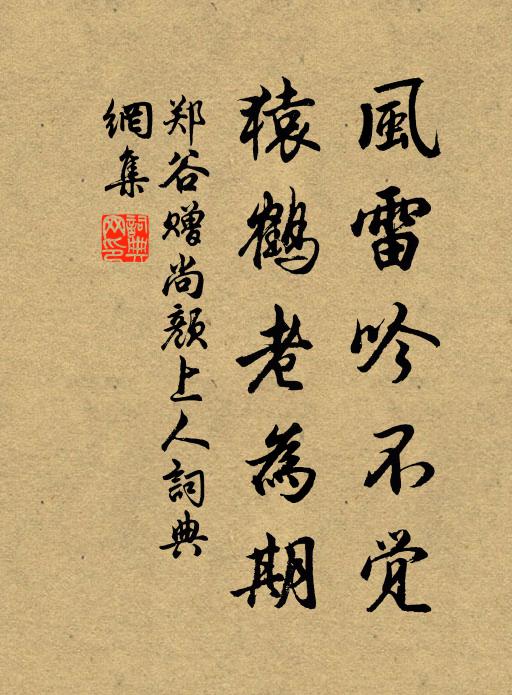 風雷吟不觉
猿鶴老為期
郑谷赠尚颜上人詞典
網集
詞典网印